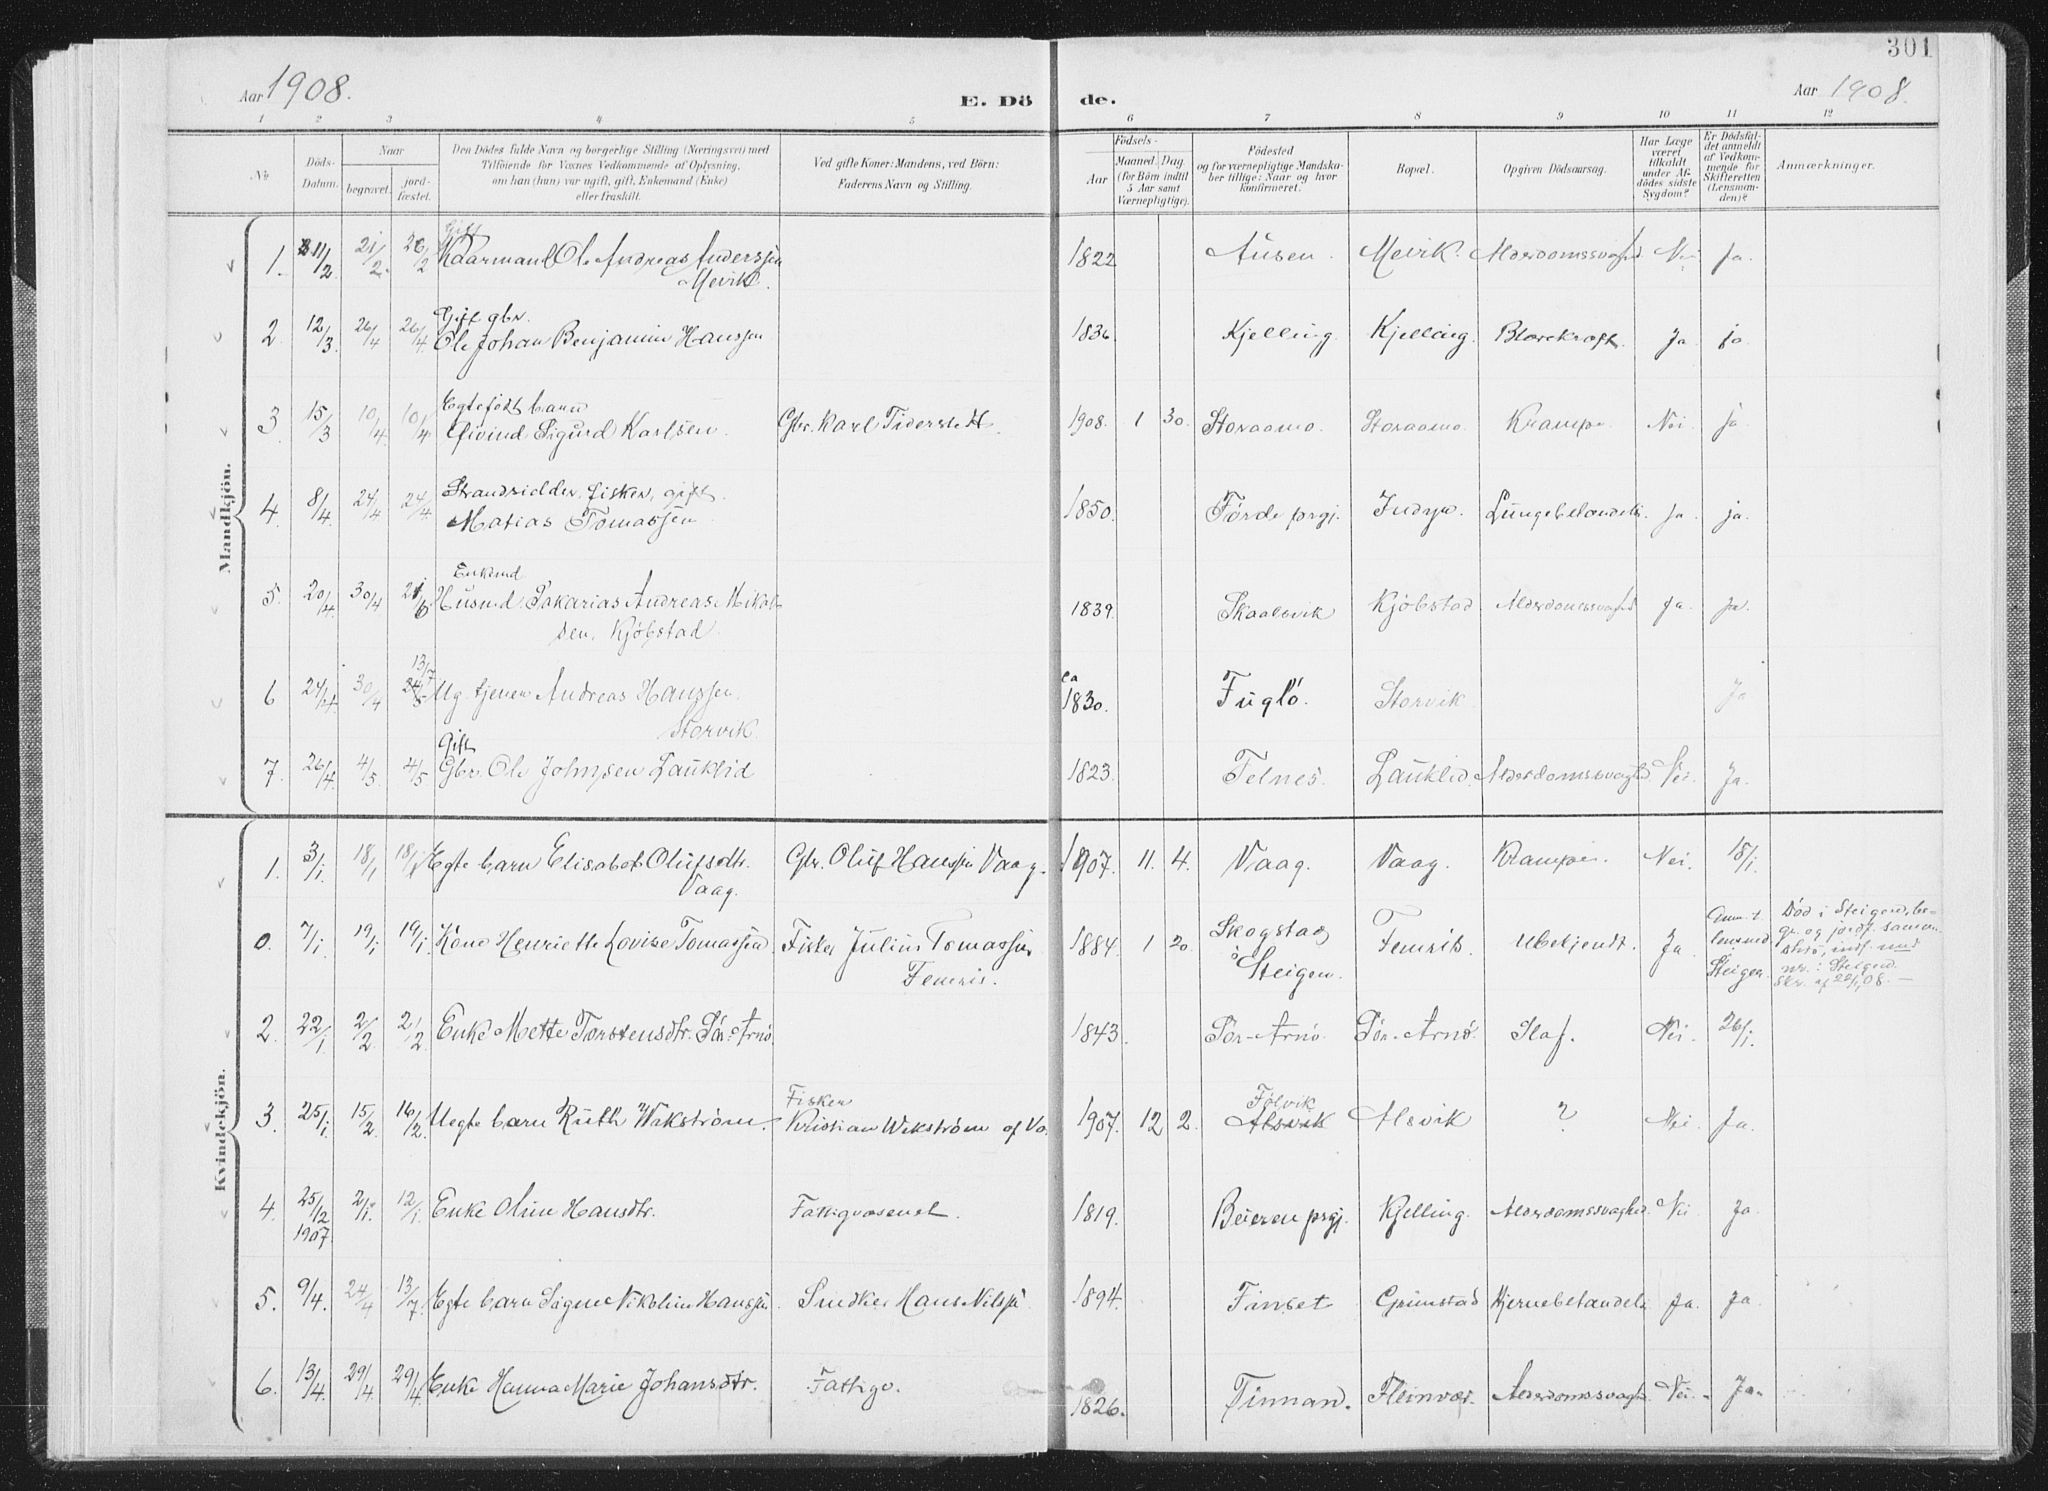 301
Aar 1908.
E. Dö de.
Aar 1908.
1 2 3 3 4 5 6 7 8 9 10 11 12
Nr.
Döds-
Datum.
Naar
begravet.
jord-
fæstet.
Den Dödes fulde Navn og borgerlige Stilling (Næringsvei) med
Tilföiende for Voxnes Vedkommende af Oplysning,
om han (hun) var ugift, gift, Enkemand (Enke)
eller fraskilt.
Ved gifte Koner: Mandens, ved Börn:
Faderens Navn og Stilling.
Födsels-
Aar
Maaned. Dag.
(for Börn indtil
5 Aar samt
Værnepligtige).
Födested
og for værnepligtige Mandska-
ber tillige: Naar og hvor
konfirmeret.
Bopæl.
Opgiven Dödsaarsag.
Har Læge
været
tilkaldt
under Af-
dödes sidste
Sygdom?
Er Dödsfal-
det anmeldt
af Vedkom-
mende for
Skifteretten
(Lensman-
den)?
Anmærkninger.
Mandkjön.
Gift
1. 11/2 21/2. 2/2 Kaarmand Ole Andreas Anderssen 1822 Ausen. Mevik. Alderdomssvaghed Nei Ja.
Mevik.
Gift gbr.
2. 12/3. 26/4 26/4 Ole Johan Benjamin Hanssen 1836. Kjelling. Kjelling. Blærekræft. Ja ja.
Egtefödt barn
3. 15/3 10/4. 10/4 Eivind Sigurd Karlsen. Gbr. Karl Tiderstedt. 1908. 1 30. Storaamo. Storaamo. Krampe. Nei. ja
Strandsidder, fisker, gift.
4. 8/4. 24/4 24/4 Matias Tomassen 1850. Förde prgj. Indyr. Lungebetændelse. ja ja.
Enkemd
5. 20/4. 30/4 21/6 Husmd. Sakarias Andreas Mikal- 1839. Skaalsvik Kjöbstad Alderdomssvaghed Ja. Ja.
sen, Kjöbstad.
13/7
6 24/4. 30/4 24/5 Ug. tjener Andreas Hanssen, ca 1830. Fuglö. Storvik Ja
Storvik.
Gift
7. 26/4. 4/5. 4/5 Gbr. Ole Johnsen Lauklid 1823. Telnes. Lauklid. Alderdomssvaghed Nei. Ja.
Kvindekjön.
1. 3/1. 18/1 18/1 Egte barn Elisabet Olufsdtr. Gbr. Oluf Hanssen Vaag. 1907. 11. 4. Vaag. Vaag. Krampe. Nei. 15/1.
Vaag.
0. 7/1. 19/1 19/1 Kone Henriette Lovise Tomassen Fisker Julius Tomassen 1884 1 20. Skogstad Femris. Ubekjendt. Ja
Femris.
i Steigen.
Anm. t.
lensmd.
Steigen.
Död i Steigen, be-
gr. og jordf. samme
sted, indf. med
nr. i Steigen.
Skr. af 22/1 08. —
2. 22/1 2/2 2/2 Enke Mette Torstensdtr. Sör-Arnö 1843. Sör-Arnö. Sör-Arnö. Slag. Nei. 26/1.
Fisker
3. 25/1. 15/2. 16/2. Uegte barn Ruth Wikström. Kristian Wikström af Va. 1907. 12 2. Alsvik Alsvik ? Nei. Ja.
Fölvik
4. 25/12 1907. 2/1. 12/1. Enke Oline Hansdtr. Fattigvæsenet. 1819. Beieren prgj. Kjelling. Alderdomssvaghed. Nei Ja.
5. 9/4. 24/4 13/7. Egte barn Signe Nikoline Hanssen Smed Hans Nilssen 1894. Finset Grimstad Hjernebetændelse Ja. Ja
6. 13/4 29/4 29/4 Enke Hanna Marie Johansdtr. Fattigv. 1826. Tinnan. Fleinvær. Alderdomssvaghed Nei. Ja.